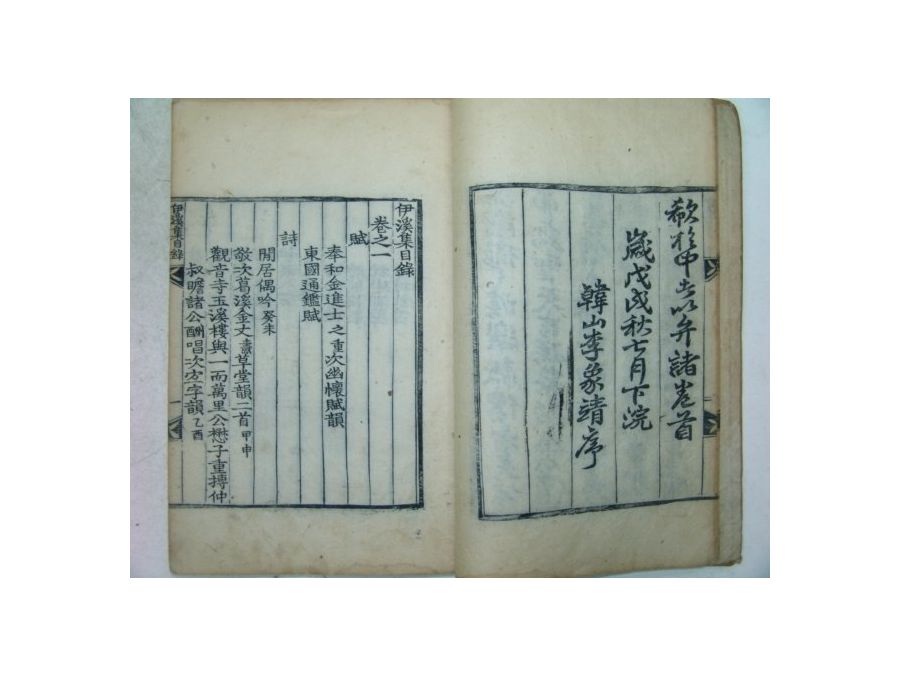 欷於中者以弁諸卷首
歲戊戌秋七月下浣
韓山李象靖序
伊溪集目錄
卷之一
賦
奉和金進士之重次幽懷賦韻
東國通鑑賦
詩
閒居偶吟癸未
敬次葛溪金丈草堂韻二首甲申
觀音寺玉溪樓與一而萬里公懋子重摶仲
叔瞻諸公酬唱次字韻乙酉
伊溪集目錄
一